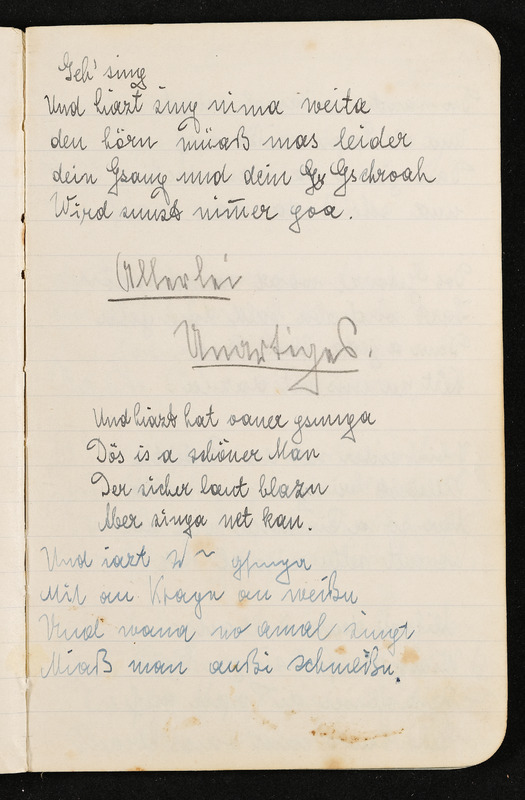 Geh' sing
Und hiazt sing nima weita
den hörn müaß mas leider
dein Gsang und dein Gschroah
Wird sunst nim̄er goa.
Allerlei
Unartiges.
Und hiazt hat oaner gsunga
Dös is a schöner Man
Der sicher laut blazn
Aber singa net kan.
Und iazt ~ gsunga
Mit an Kragn an weißn
Und wann no amal singt
Miaß man außi schmeißn.